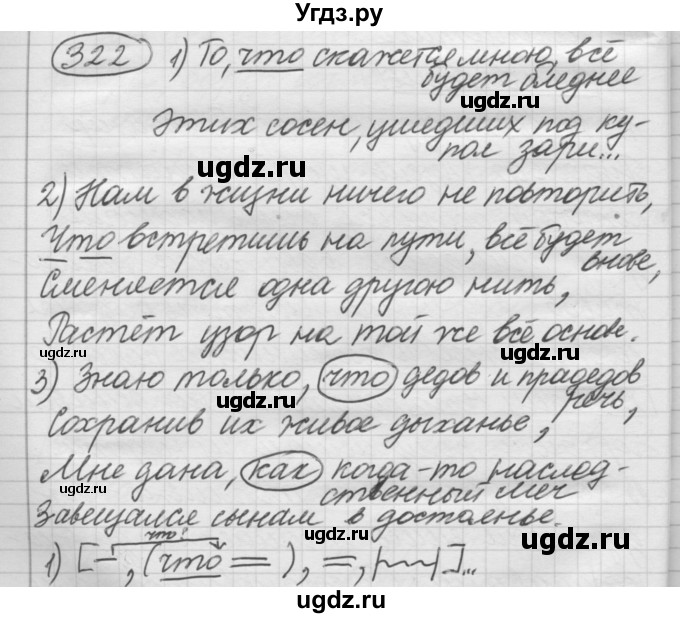 Угдз.ру
322 1) То, что скажется мною, всё
будет бледнее
ugdz.ru
Этих сосен, ушедших под ку-
ugdz.ru
пол зари...
ugdz.ru
2) Нам в жизни ничего не повторить,
Что встретишь на пути, всё будет
внове,
ugdz.ru
Сменяется одна другою нить,
Растёт узор на той же всё основе.
ugdz.ru
ugdz.ru
3) Знаю только, что дедов и прадедов
речь,
ugdz.ru
Сохранив их живое дыханье,
Мне дана, как когда-то наслед-
ственный меч
ugdz.ru
Завещался сынам в достоянье.
ugdz.ru
что?
1) [–, (что =), =, |~~|]...
ugdz.ru
ugdz.ru